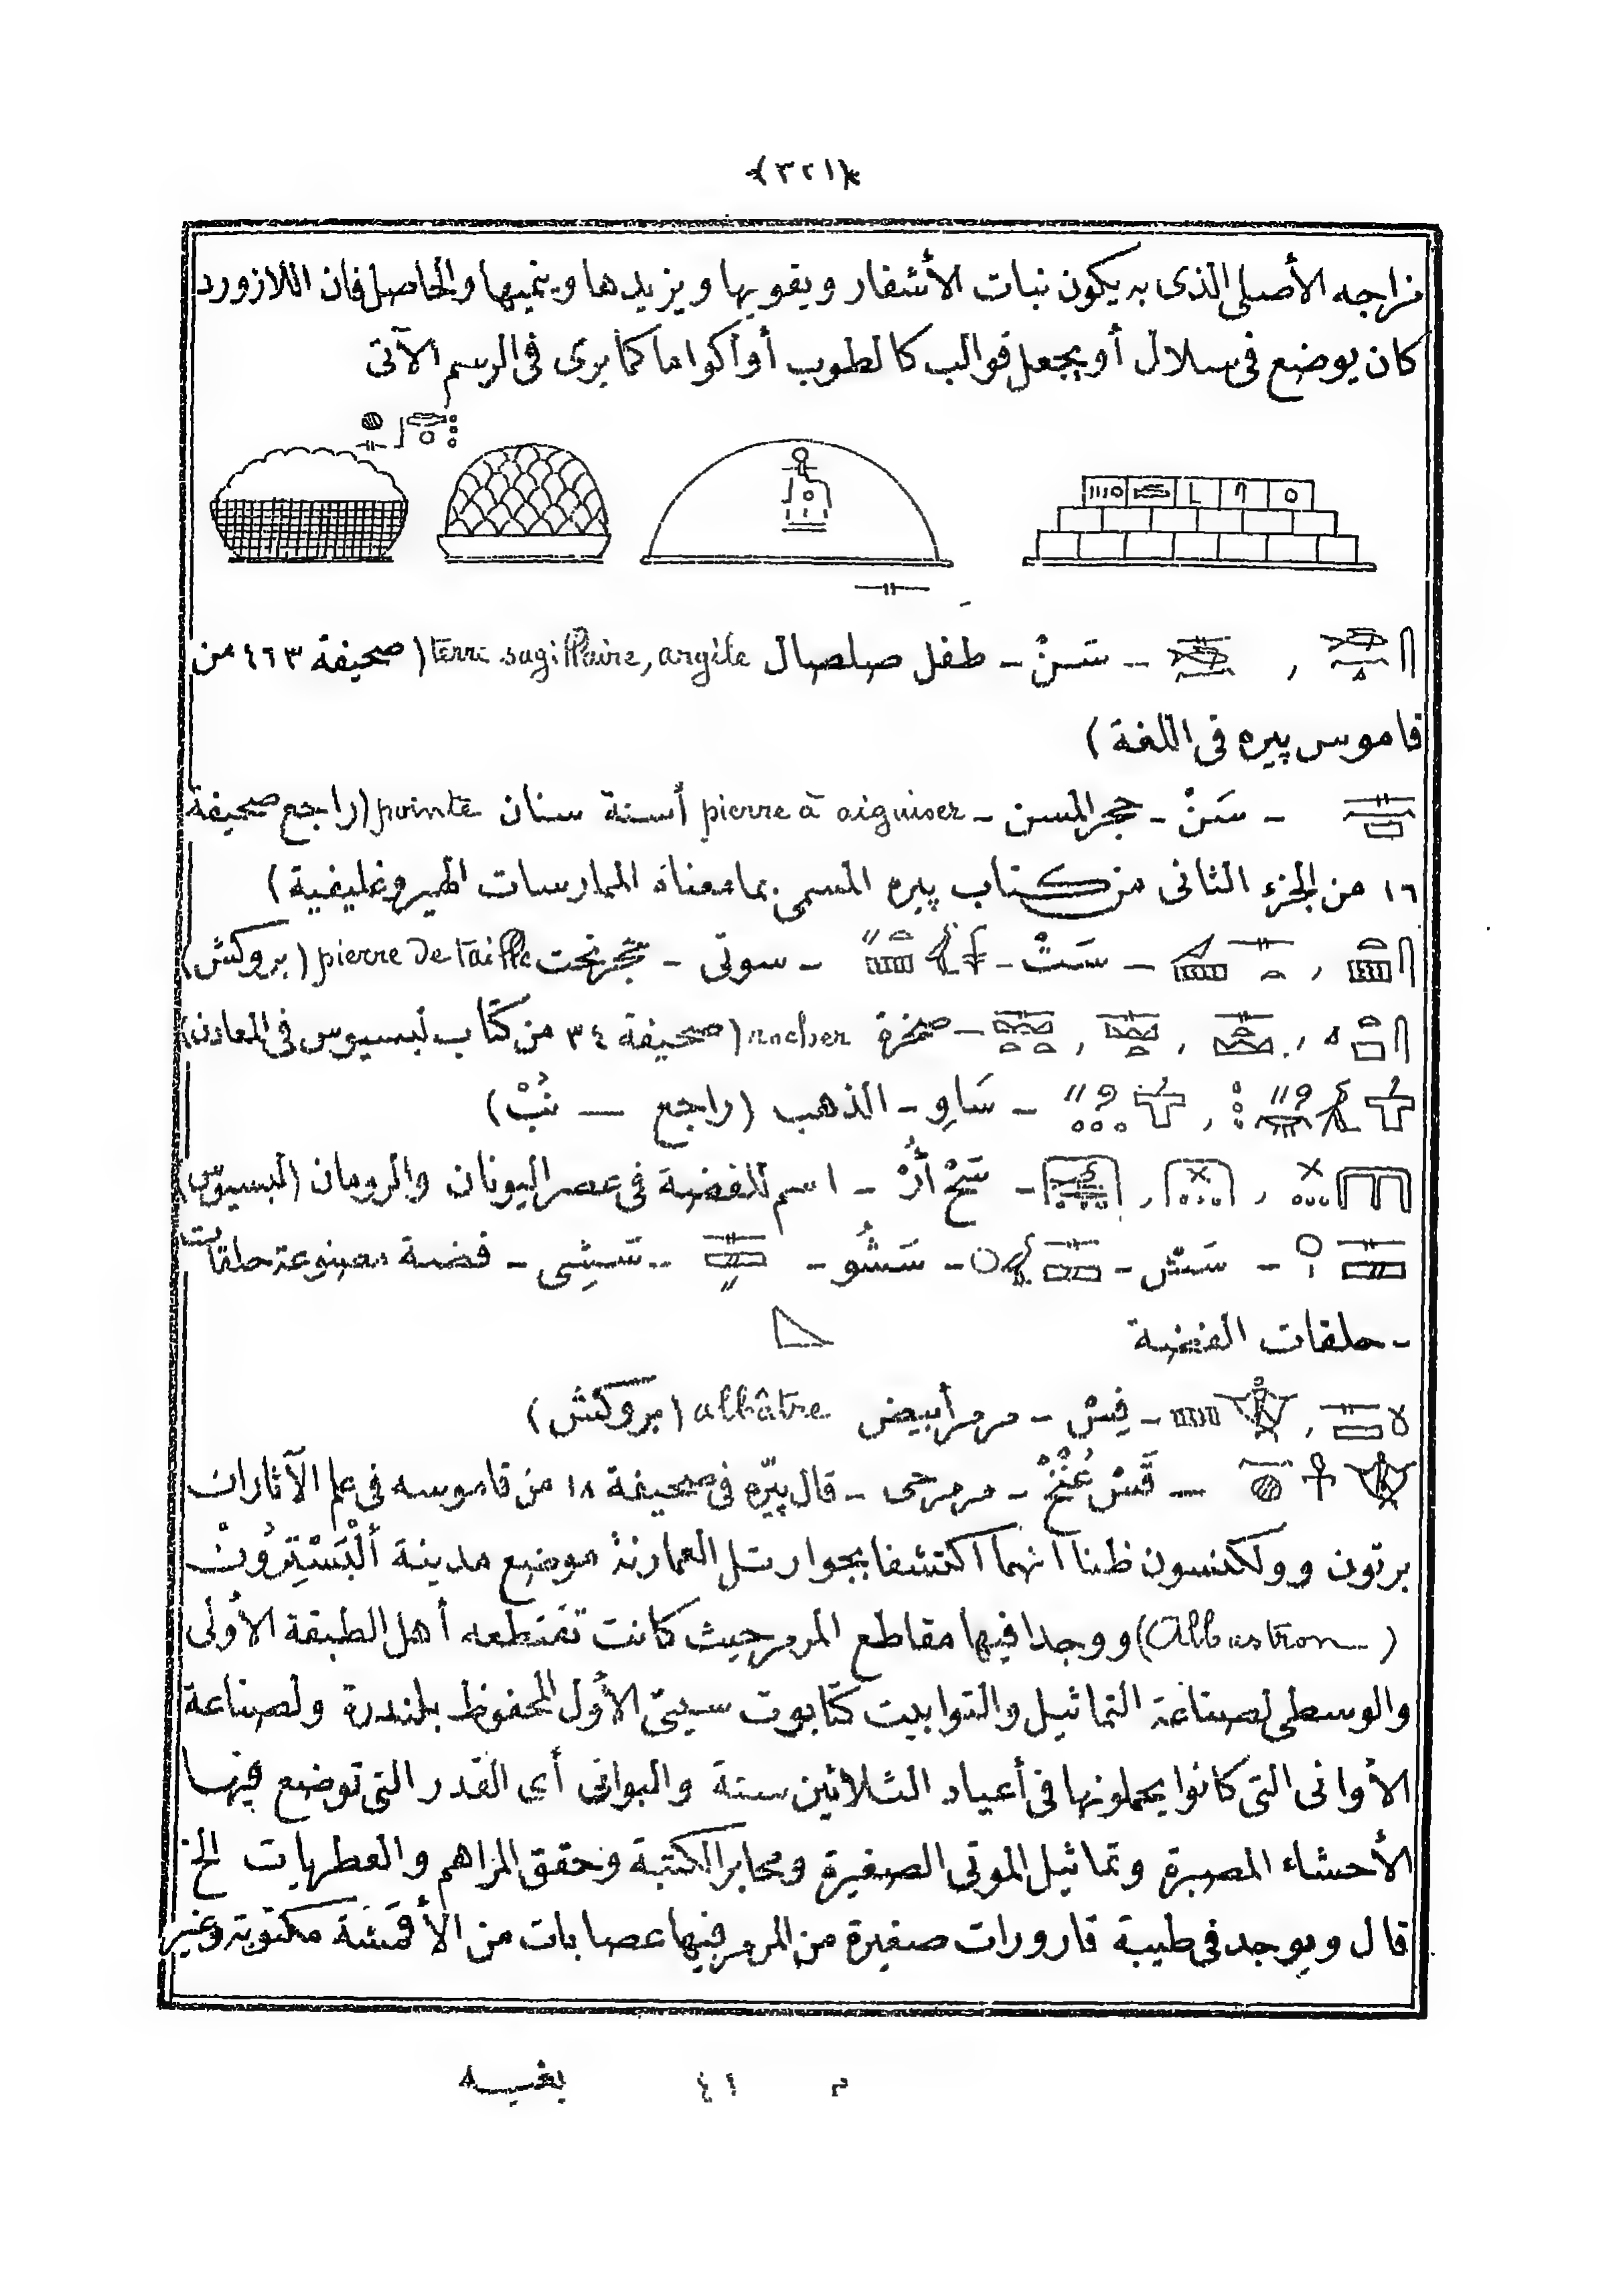 ﴿٣٢١﴾
مزاجه الأصلى الذى به يكون نبات الأشفار ويقويها ويزيدها وينميها والحاصل فان اللازورد
كان يوضع فى سلال أو يجعل قوالب كالطوب أو أكواما كما يرى فى الرسم الآتى
, – سَنْ – طفل صلصال terre sagillaire, argile (صحيفة ٤٦٣ من
قاموس پيره فى اللغة)
– سَنْ – حجر المسن – pierre à aiguiser أسنة سنان pointe (راجع صحيفة
١٦ من الجزء الثانى من كتاب پيره المسمى بما معناه الممارسات الهيروغليفية)
, – سَتْ – – سوتى – حجر نحت pierre de taille (بروكش)
, , , – صخرة rocher (صحيفة ٣٤ من كتاب لبسيوس فى المعادن)
, – سَاوِ – الذهب (راجع — نُبْ)
, , – سَحْ أُرْ – اسم للفضة فى عصر اليونان والرومان (لبسيوس)
– سَشْ – – سَشُو – – سَشِى – فضة مصنوعة حلقات
– حلقات الفضة
, – قِسْ – مرمر أبيض albâtre (بروكش)
– قَسْ عُنْخْ – مرمر حى – قال پيّره فى صحيفة ١٨ من قاموسه فى علم الآثاران
برتون وولكنسون ظنا أنهما اكتشفا بجوار تل العمارنة موضع مدينة ألْبَسْتِرُونْ
(Albastron) ووجدا فيها مقاطع المرمر حيث كانت تقتطعه أهل الطبقة الأولى
والوسطى لصناعة التماثيل والتوابيت كتابوت سيتى الأول المحفوظ بلندرة ولصناعة
الأوانى التى كانوا يحملونها فى أعياد الثلاثين سنة والبوانى أى القدر التى توضع فيها
الأحشاء المصبرة وتماثيل الموتى الصغيرة ومحابر الكتبة وحقق المراهم والعطريات الخ
قال ويوجد فى طيبة قارورات صغيرة من المرمر فيها عصابات من الأقمشة مكتوبة وغير
م ٤١ بغيه